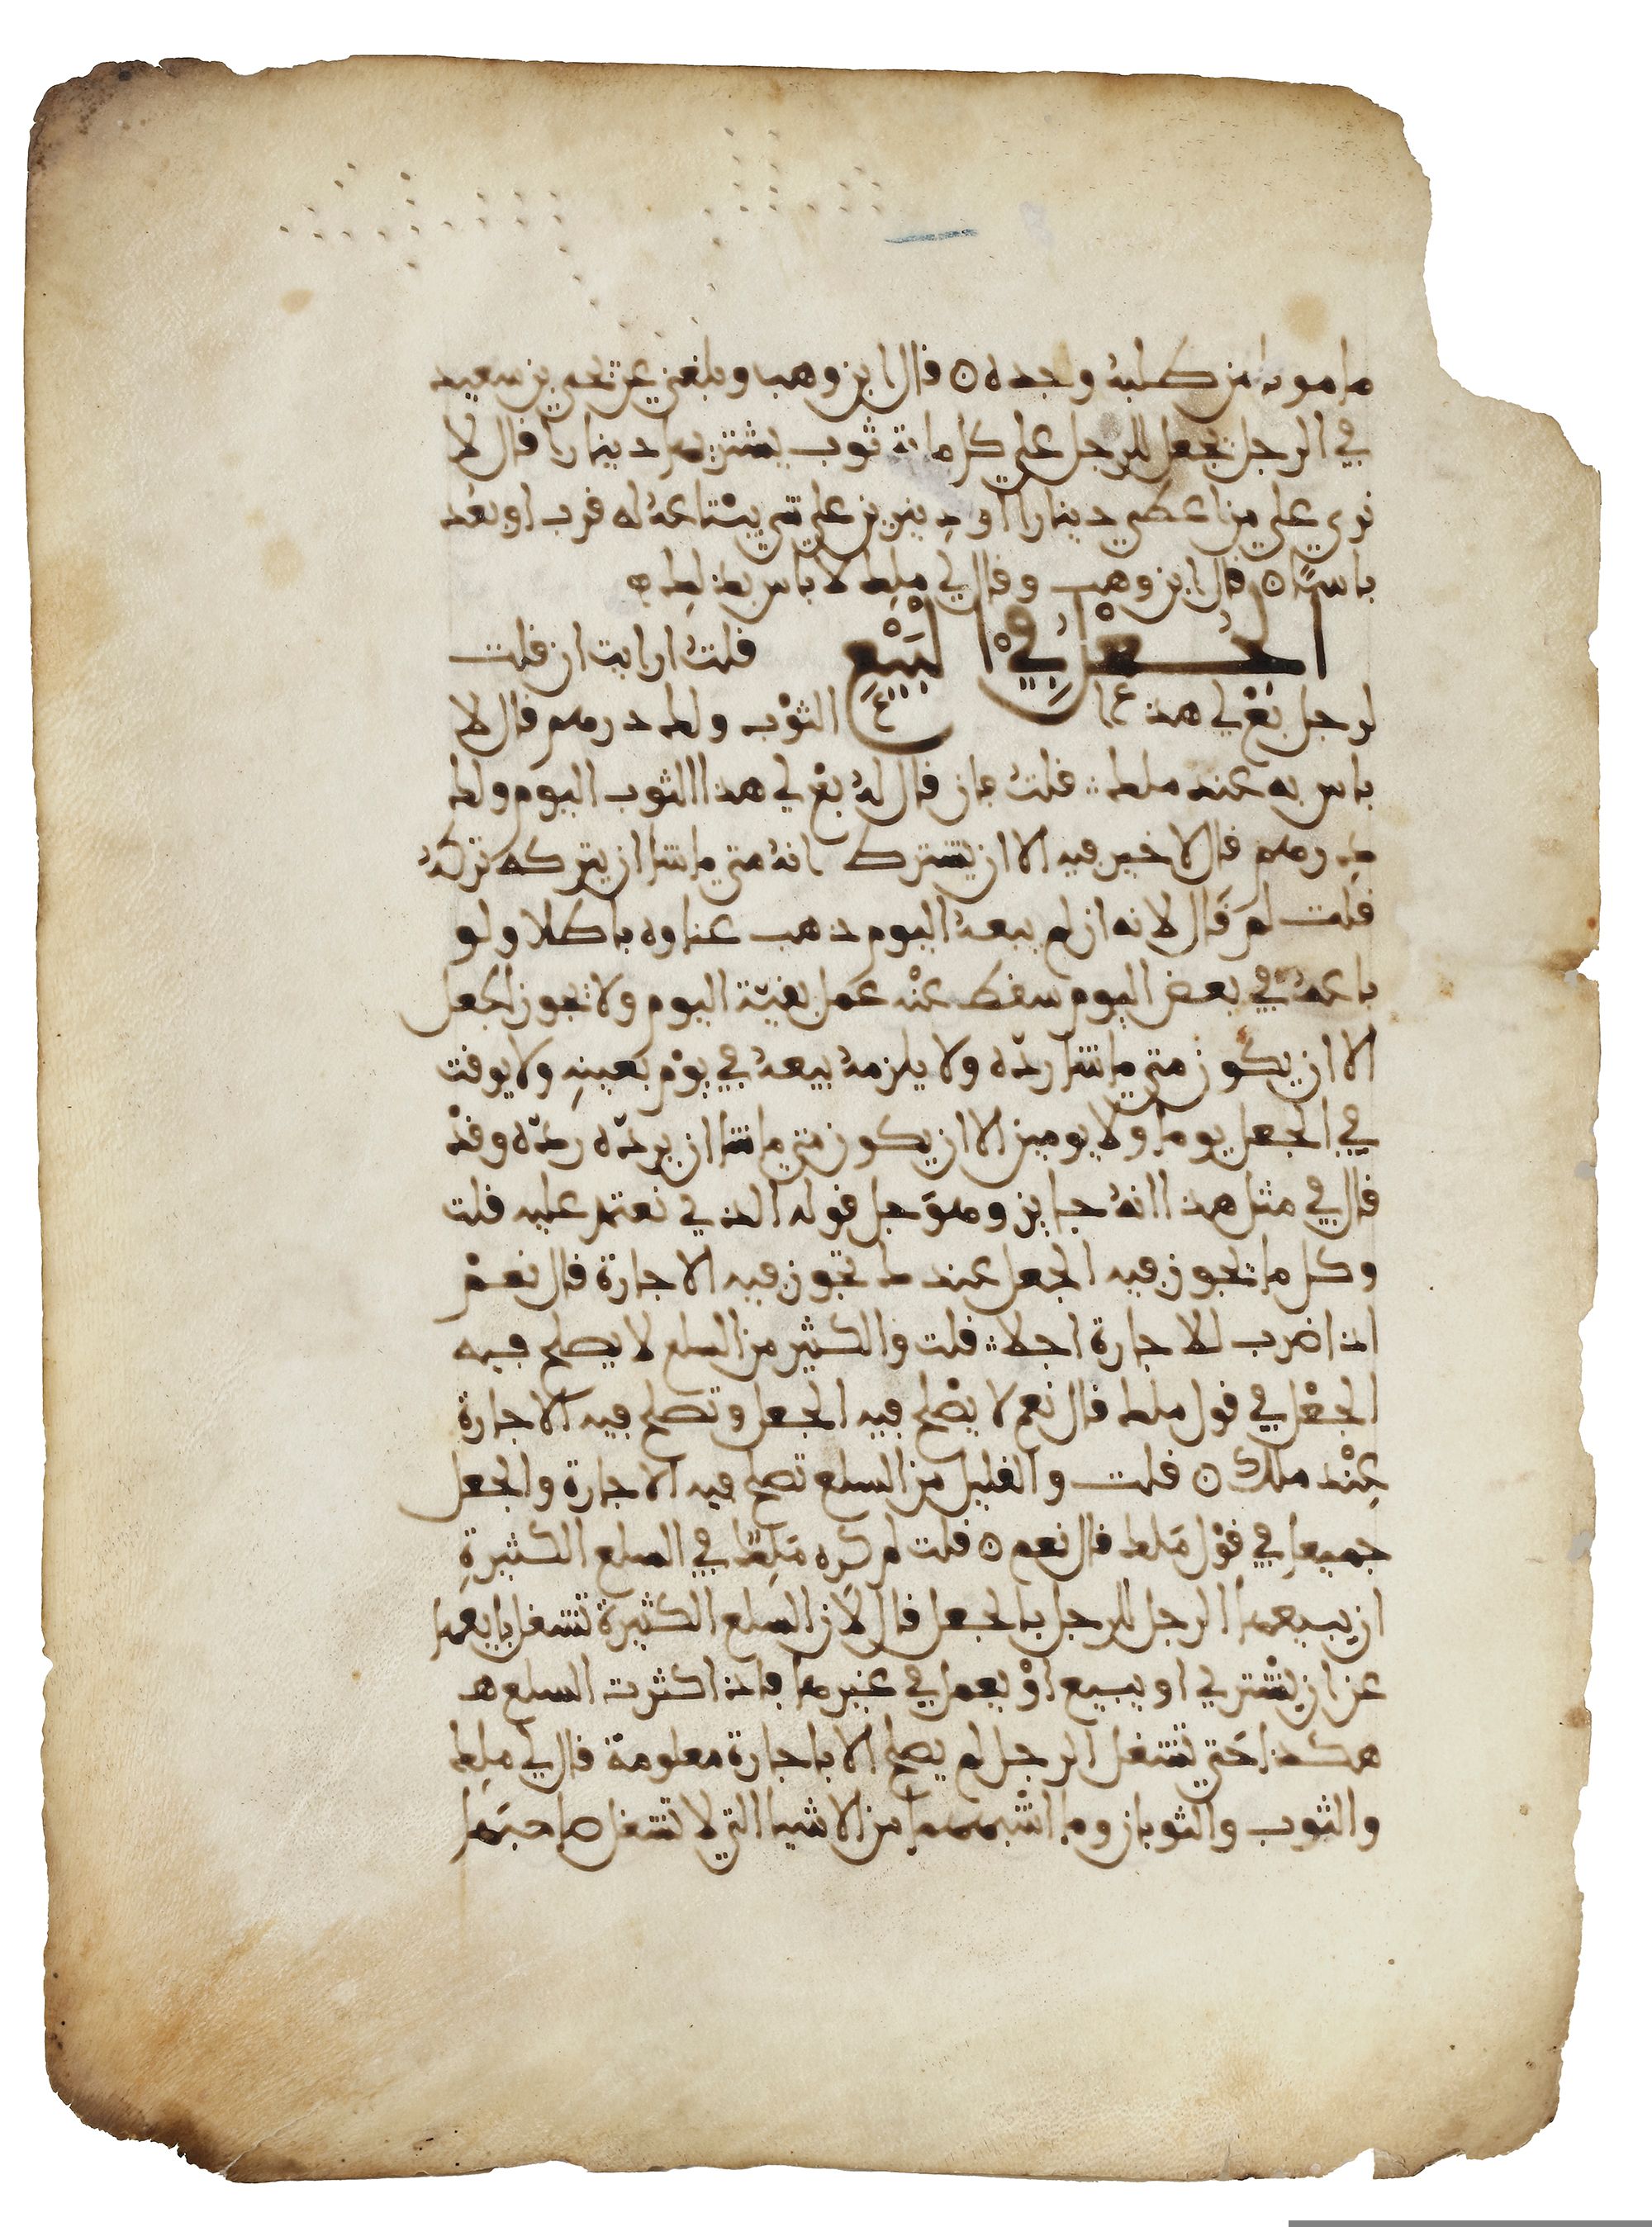 ما مونه من طلبه وجده ۝ قال ابن وهب وبلغني عن يحيى بن سعيد
في الرجل يجعل للرجل على كل ماية ثوب يشتريها دينارا قال لا
نرى على من اعطى دينارا او دينرين على شي يبتاعه له قرب او بعد
باسا ۝ قال ابن وهب وقال لي ملك لا باس بذلك
الجعل في البيع قلت ارايت ان قلت
لرجل بع لي هذا الثوب ولك درهم قال لا
باس به عند ملك قلت فان قال له بع لي هذا الثوب اليوم ولك
درهم قال لا خير فيه الا ان يشترط انه متى ما شا ان يتركه تركه
قلت لم قال لانه ان لم يبعه اليوم ذهب عناوه باطلا ولو
باعه في بعض اليوم سقط عنه عمل بقية اليوم ولا يجوز الجعل
الا ان يكون متى ما شا رده ولا يلزمه بيعه في يوم بعينه ولا يوقت
في الجعل يوما ولا يومين الا ان يكون متى ما شا ان يرده رده وقد
قال في مثل هذا انه جايز وهو جل قوله الذي نعتمد عليه قلت
وكل ما يجوز فيه الجعل عندك تجوز فيه الاجارة قال نعم
اذا ضرب للاجارة اجلا قلت والكثير من السلع لا يصلح فيه
الجعل في قول ملك قال نعم لا يصلح فيه الجعل وتصلح فيه الاجارة
عند ملك ۝ قلت والقليل من السلع تصلح فيه الاجارة والجعل
جميعا في قول ملك قال نعم ۝ قلت لم كره ملك في السلع الكثيرة
ان يبيعها الرجل للرجل بالجعل قال لان السلع الكثيرة تشغل بايعها
عن ان يشتري او يبيع او يعمل في غيرها فاذا كثرت السلع هـ
هكذا حتى تشغل الرجل لم يصلح الا باجارة معلومة قال لي ملك
والثوب والثوبان وما اشبههما من الاشيا التي لا تشغل صاحبها